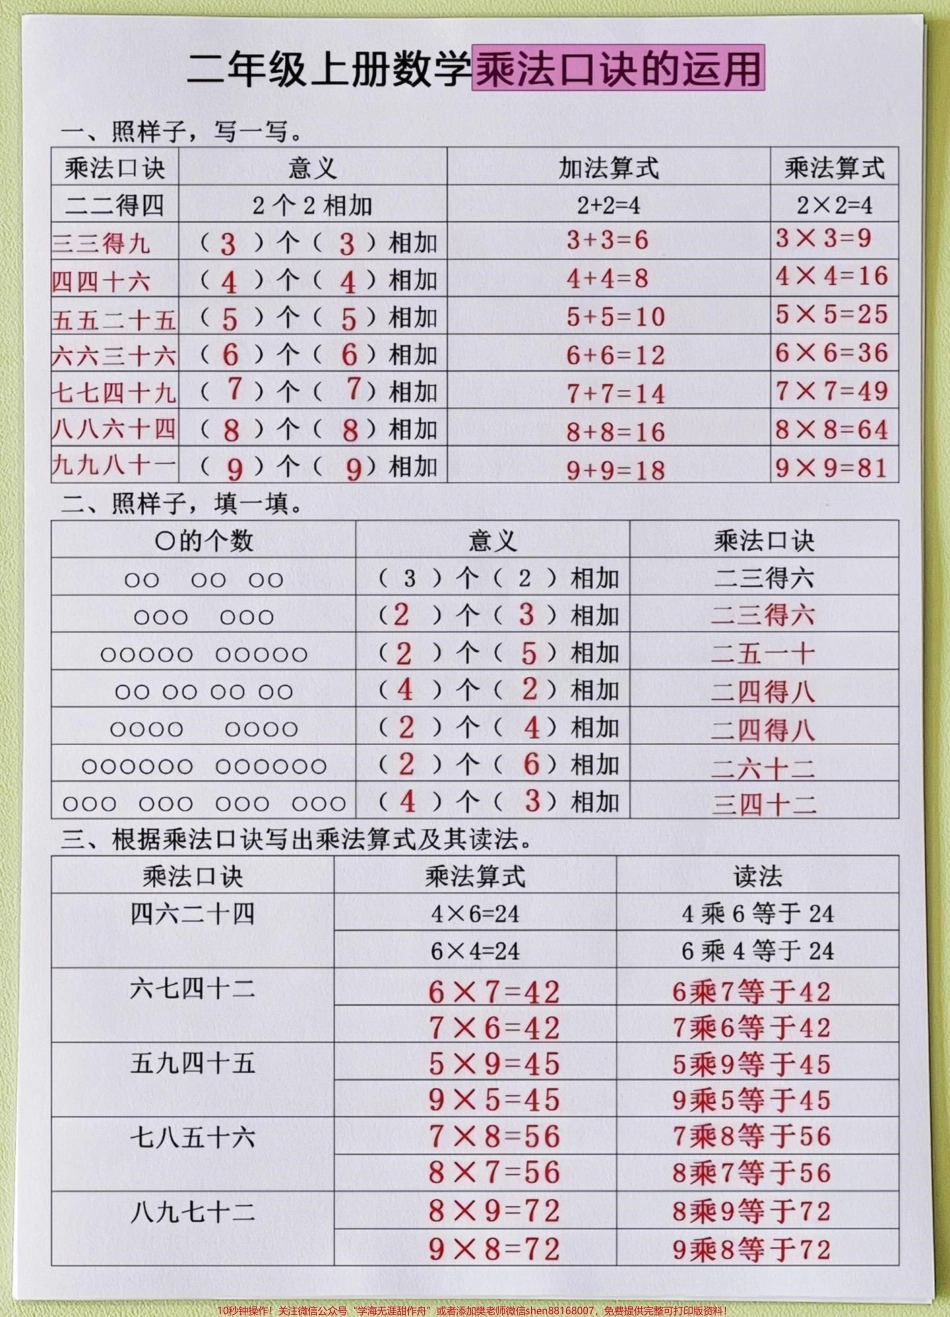 二年级上册数学乘法口诀的运用
一、照样子，写一写。
乘法口诀 意义 加法算式 乘法算式
二二得四 2个2相加 2+2=4 2×2=4
三三得九 （3）个（3）相加 3+3=6 3×3=9
四四十六 （4）个（4）相加 4+4=8 4×4=16
五五二十五 （5）个（5）相加 5+5=10 5×5=25
六六三十六 （6）个（6）相加 6+6=12 6×6=36
七七四十九 （7）个（7）相加 7+7=14 7×7=49
八八六十四 （8）个（8）相加 8+8=16 8×8=64
九九八十一 （9）个（9）相加 9+9=18 9×9=81
二、照样子，填一填。
〇的个数 意义 乘法口诀
○○ ○○ ○○ （3）个（2）相加 二三得六
○○○ ○○○ （2）个（3）相加 二三得六
○○○○○ ○○○○○ （2）个（5）相加 二五一十
○○ ○○ ○○ ○○ （4）个（2）相加 二四得八
○○○○ ○○○○ （2）个（4）相加 二四得八
○○○○○○ ○○○○○○ （2）个（6）相加 二六十二
○○○ ○○○ ○○○ ○○○ （4）个（3）相加 三四十二
三、根据乘法口诀写出乘法算式及其读法。
乘法口诀 乘法算式 读法
四六二十四 4×6=24 4乘6等于24
6×4=24 6乘4等于24
六七四十二 6×7=42 6乘7等于42
7×6=42 7乘6等于42
五九四十五 5×9=45 5乘9等于45
9×5=45 9乘5等于45
七八五十六 7×8=56 7乘8等于56
8×7=56 8乘7等于56
八九七十二 8×9=72 8乘9等于72
9×8=72 9乘8等于72
10秒钟操作！关注微信公众号“学海无涯甜作舟”或者添加樊老师微信shen88168007、免费提供完整可打印版资料！